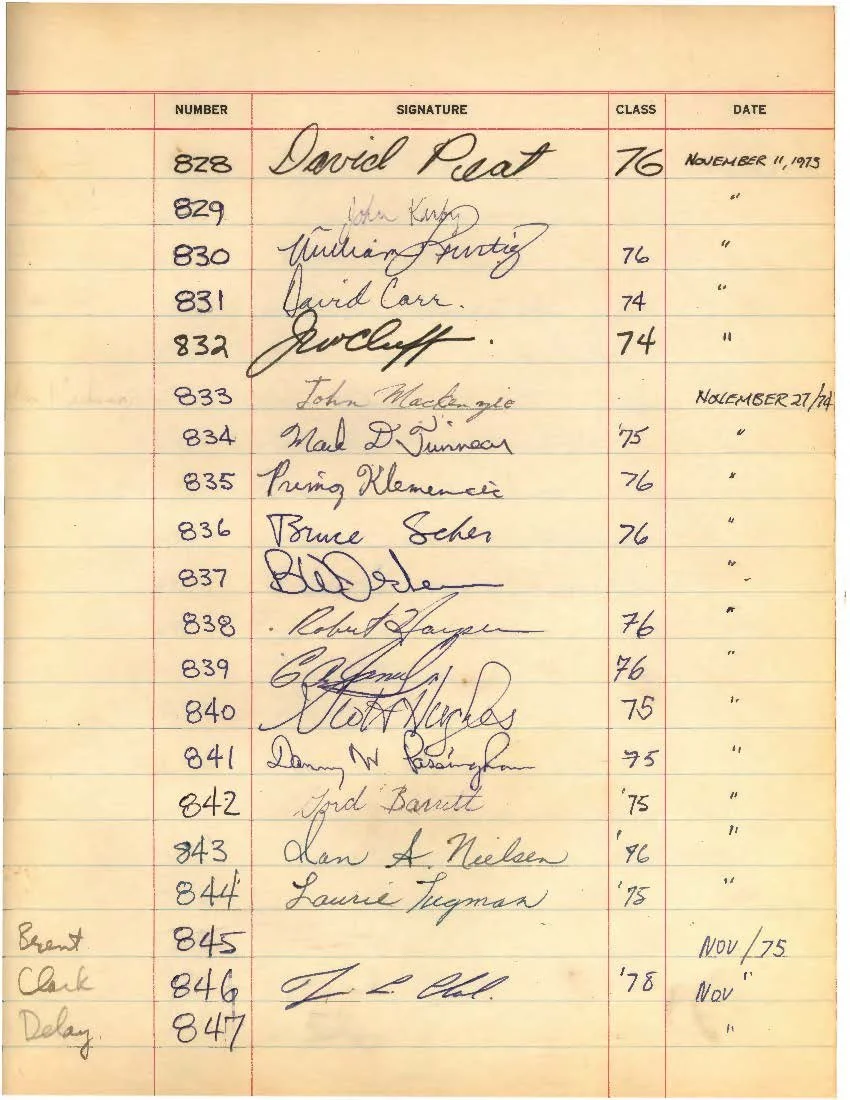 NUMBER SIGNATURE CLASS DATE
828 David Peat 76 NOVEMBER 11, 1973
829 John Kirby "
830 William 76 "
831 David Carr. 74 "
832 74 "
833 John Mackenzie NOVEMBER 27/74
834 Mark D. '75 "
835 Primoz Klemencic 76 "
836 Bruce Scher 76 "
837 "
838 Robert Harper 76 "
839 76 "
840 Scott Hughes 75 "
841 Danny W Passingham 75 "
842 Ford Barrett '75 "
843 Ian A. Nielsen '76 "
844 Laurie Tugman '75 "
Brent 845 NOV/75
Clark 846 '78 NOV "
Delay 847 "